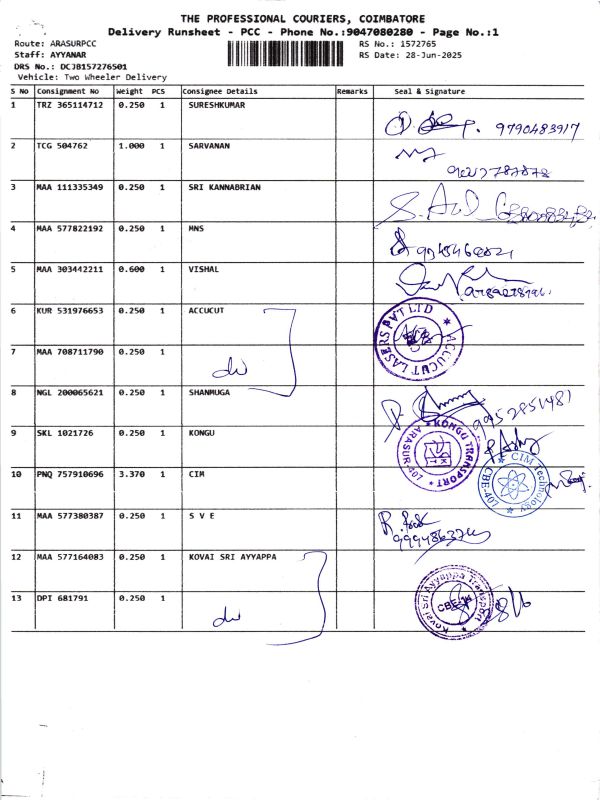 THE PROFESSIONAL COURIERS, COIMBATORE
Delivery Runsheet - PCC - Phone No.:9047080280 - Page No.:1
Route: ARASURPCC RS No.: 1572765
Staff: AYYANAR RS Date: 28-Jun-2025
DRS No.: DCJB157276501
Vehicle: Two Wheeler Delivery
S No Consignment No Weight PCS Consignee Details Remarks Seal & Signature
1 TRZ 365114712 0.250 1 SURESHKUMAR
9790483917
2 TCG 504762 1.000 1 SARVANAN
3 MAA 111335349 0.250 1 SRI KANNABRIAN
4 MAA 577822192 0.250 1 MNS
5 MAA 303442211 0.600 1 VISHAL
6 KUR 531976653 0.250 1 ACCUCUT
ACCUCUT LASERS PVT LTD
7 MAA 708711790 0.250 1
8 NGL 200065621 0.250 1 SHANMUGA
9952851481
9 SKL 1021726 0.250 1 KONGU
KONGU TRANSPORT ARASUR-407
10 PNQ 757910696 3.370 1 CIM
CIM Technology CBE-407
11 MAA 577380387 0.250 1 S V E
12 MAA 577164083 0.250 1 KOVAI SRI AYYAPPA
13 DPI 681791 0.250 1
Kovai Sri Ayyappa Transport